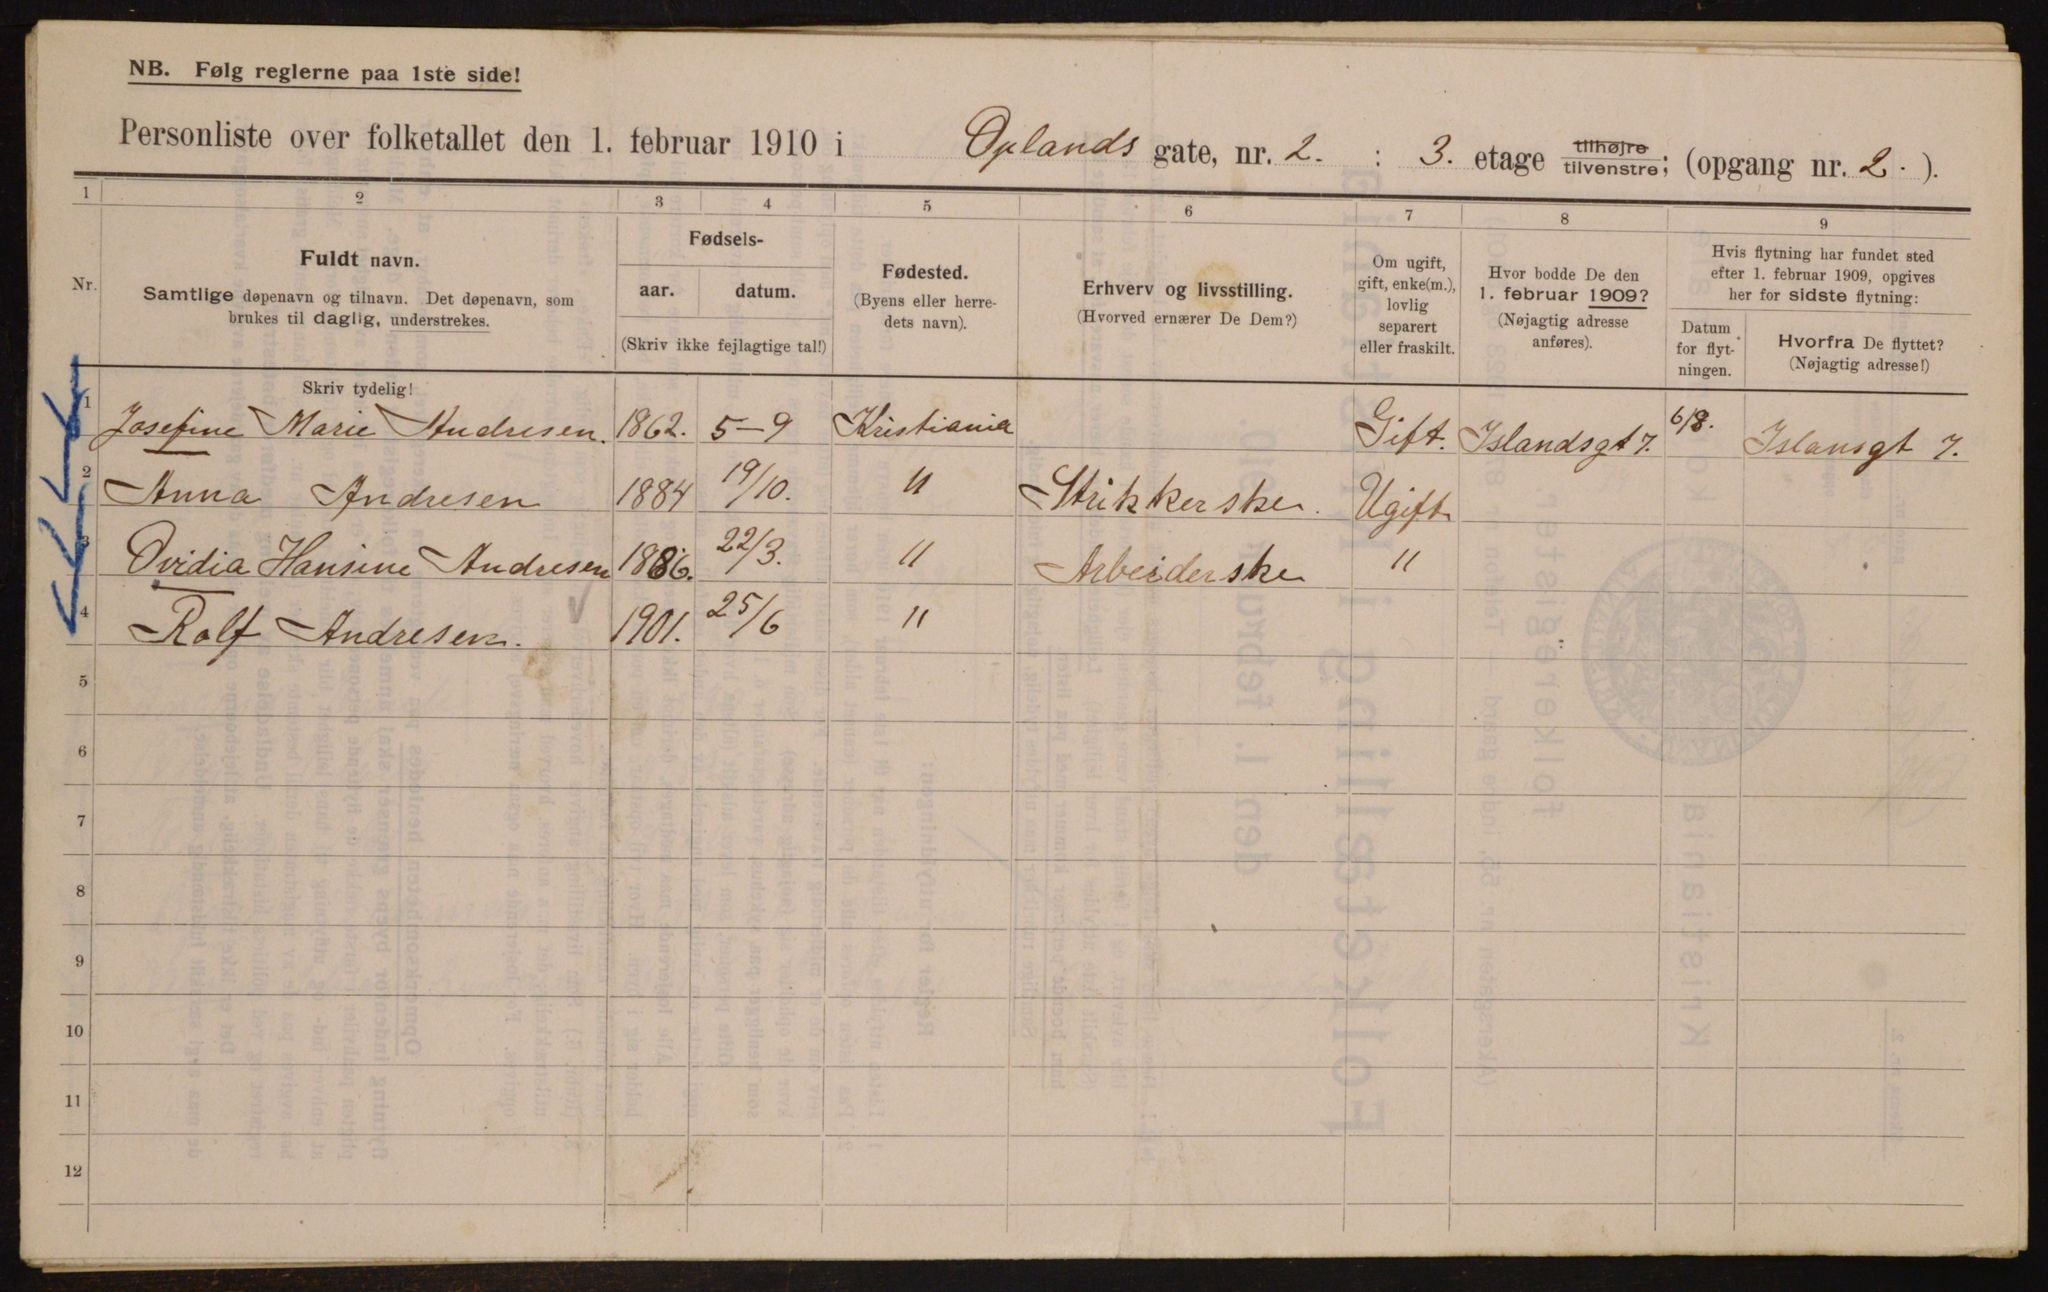 NB. Følg reglerne paa 1ste side!
Personliste over folketallet den 1. februar 1910 i Oplands gate, nr. 2. : 3. etage tilhøjre tilvenstre; (opgang nr. 2. ).
1 2 3 4 5 6 7 8 9
Nr.
Fuldt navn.
Samtlige døpenavn og tilnavn. Det døpenavn, som
brukes til daglig, understrekes.
Fødsels-
aar. datum.
(Skriv ikke fejlagtige tal!)
Fødested.
(Byens eller herre-
dets navn).
Erhverv og livsstilling.
(Hvorved ernærer De Dem?)
Om ugift,
gift, enke(m.),
lovlig
separert
eller fraskilt.
Hvor bodde De den
1. februar 1909?
(Nøjagtig adresse
anføres).
Hvis flytning har fundet sted
efter 1. februar 1909, opgives
her for sidste flytning:
Datum
for flyt-
ningen.
Hvorfra De flyttet?
(Nøjagtig adresse!)
Skriv tydelig!
1 Josefine Marie Andresen. 1862. 5-9 Kristiania Gift. Islandsgt 7. 6/8. Islansgt 7.
2 Anna Andresen 1884 19/10. " Strikkerske. Ugift
3 Ovidia Hansine Andresen 1886. 22/3. " Arbeiderske "
4 Rolf Andresen. 1901. 25/6 "
5
6
7
8
9
10
11
12